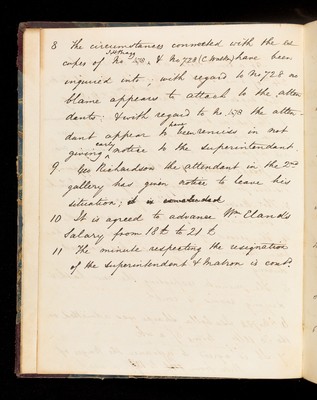 8 The circumstances connected with the es
J H Bragg
capes of No 578, & No 728 (C. Walker) have been
inquired into; with regard to No 728 no
blame appears to attach to the atten
dants: & with regard to No 578 the atten-
have
dant appear to been remiss in not
early
giving notice to the superintendent.
9 Geo Richardson the attendant in the 2nd
gallery has given notice to leave his
situation; it is
10 It is agreed to advance Wm Eland's
Salary from 18£ to 21£
11 The minute respecting the resignation
of the Superintendent & Matron is contd.